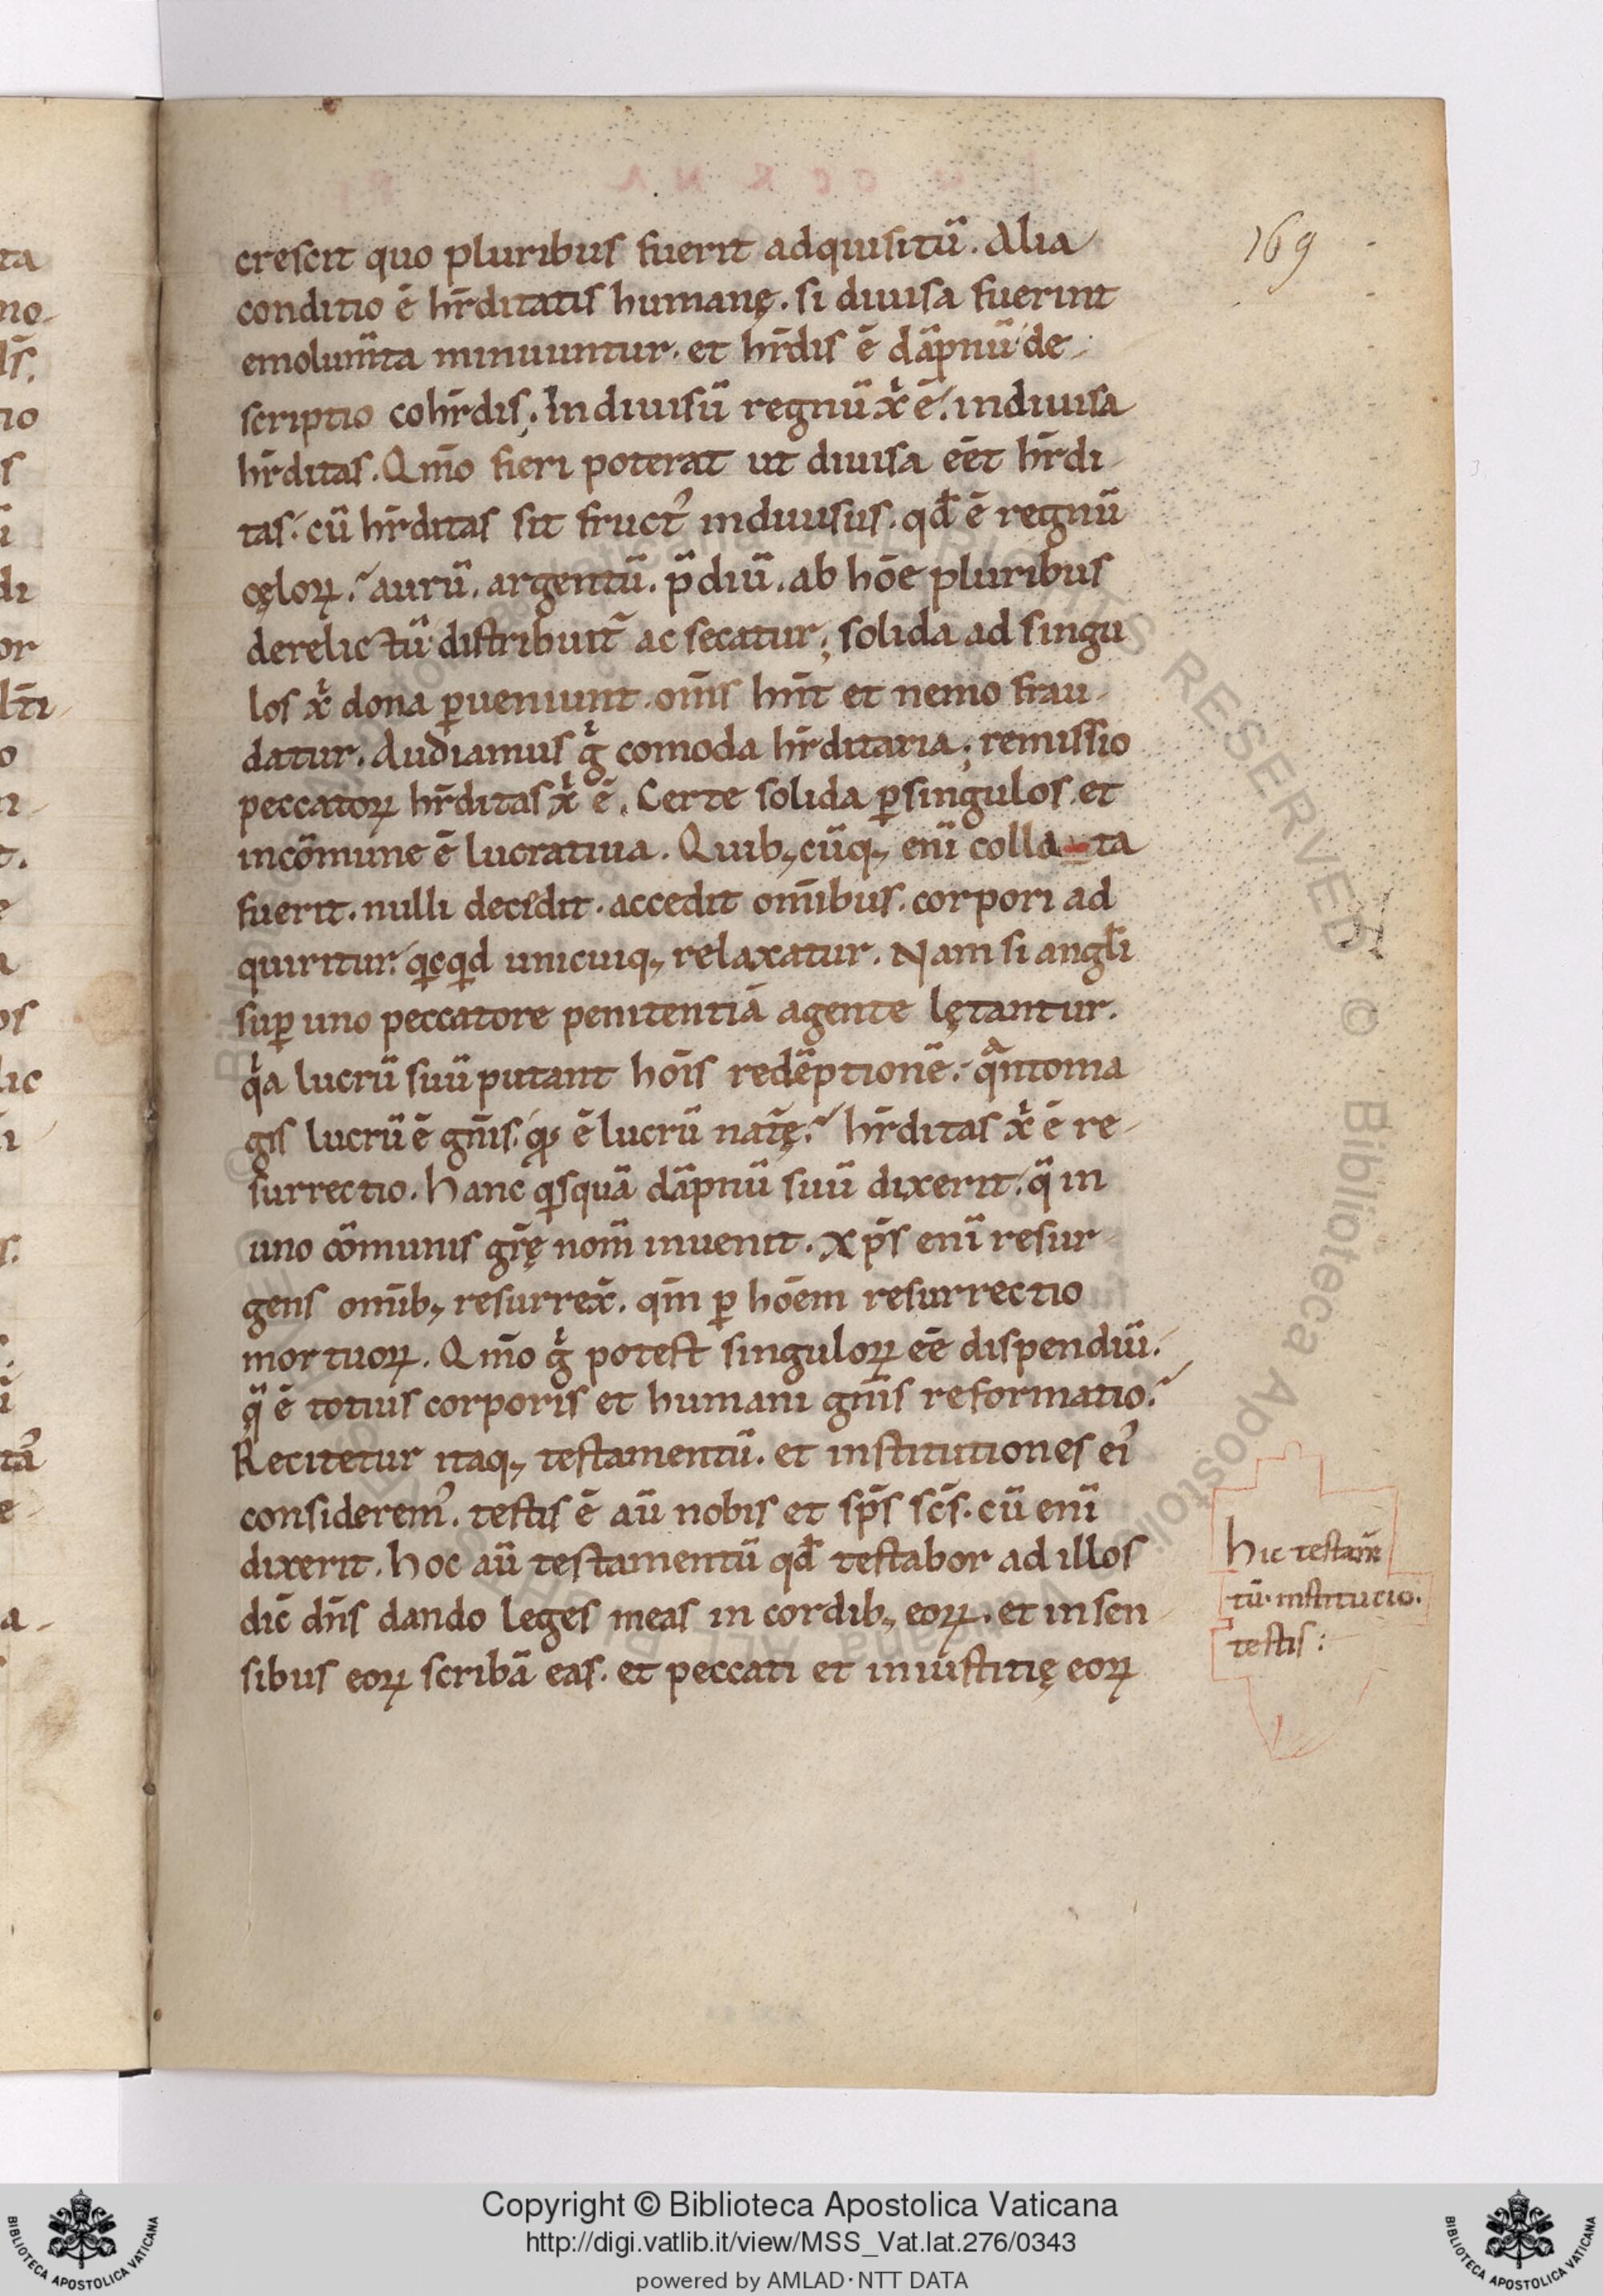 169
crescit quo pluribus fuerit adquisitū. Alia
conditio ē hr̄ditatis humanę. si diuisa fuerint
emolum̄ta minuuntur. et hr̄dis ē dāpnū de-
scriptio cohr̄dis; Indiuisū regnū xͥ ē. indiuisa
hr̄ditas. Qm̄o fieri poterat ut diuisa eēt hr̄di-
tas. cū hr̄ditas sit fruct᾿ indiuisus. qđ ē regnū
cęloꝝ. aurū. argentū. p̄diū. ab hōe pluribus
derelictū distribuit᷑ ac secatur; solida ad singu
los xͥ dona ꝑueniunt. om̄s hn̄t et nemo frau-
datur. Audiamus gͥ comoda hr̄ditaria; remissio
peccatoꝝ hr̄ditas xͥ ē. Certe solida ꝑ singulos et
in cōmune ē lucratiua. Quibꝫ cūqꝫ eni̅ colla-ta
fuerit. nulli decidit. accedit om̄ibus. corpori ad
quiritur. qͥcqͥd unicuiqꝫ relaxatur. Nam si angl̄i
suꝑ uno peccatore penitentiā agente lętantur.
qͥa lucrū suū putant hōis redēptionē. qͣnto ma
gis lucrū ē gn̄is. ꝙ ē lucrū nat̄ę. hr̄ditas xͥ ē re-
surrectio. Hanc qͥsquā dāpnū suū dixerit. qͣ in
uno cōmunis gr̄ę nom̄ inuenit. Xp̄s eni̅ resur-
gens om̄ibꝫ resurrex̄. qm̄ ꝑ hōem resurrectio
mortuoꝝ. Qm̄o gͥ potest singuloꝝ eē dispendiū.
qͣ ē totius corporis et humani gn̄is reformatio.
Recitetur itaqꝫ testamentū. et institutiones ei᾿
considerem᾿. testis ē aū nobis et sp̄s sc̄s. cū eni̅
dixerit. hoc aū testamentū qđ testabor ad illos
dic̄ dn̄s dando leges meas in cordibꝫ eoꝝ. et in sen
sibus eoꝝ scribā eas. et peccati et iniustitię eoꝝ
hic testam̄
tū. institucio.
testis:
Copyright © Biblioteca Apostolica Vaticana
http://digi.vatlib.it/view/MSS_Vat.lat.276/0343
powered by AMLAD·NTT DATA
BIBLIOTECA APOSTOLICA VATICANA
BIBLIOTECA APOSTOLICA VATICANA